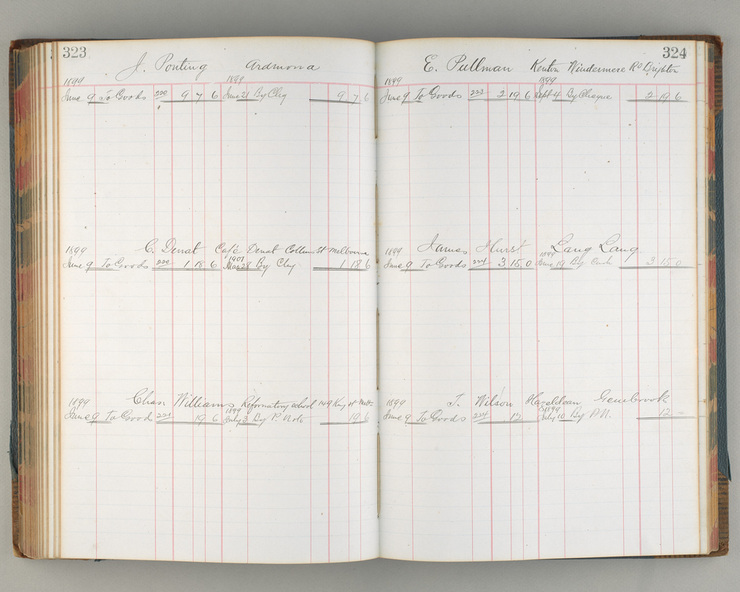 323
J. Ponting Ardmona
1899 1899
June 9 To Goods 222 9 7 6 June 21 By Chq 9 7 6
1899 C. Denat Café Denat Collins St Melbourne
June 9 To Goods 222 1 18 6 1901 28 By Chq 1 18 6
1899 Chas Williams Reformatory School 149 King St Melb
June 9 To Goods 223 19 6 1899 July 3 By P. Note 19 6
324
E. Pullman Kenton Windermere Rd Brighton
1899 1899
June 9 To Goods 223 2 19 6 Sept 4 By Cheque 2 19 6
1899 James Hurst Lang Lang
June 9 To Goods 224 3 15 0 1899 June 19 By Cash 3 15 0
1899 T. Wilson Gembrook
June 9 To Goods 224 12 1899 July 10 By P.N. 12 -